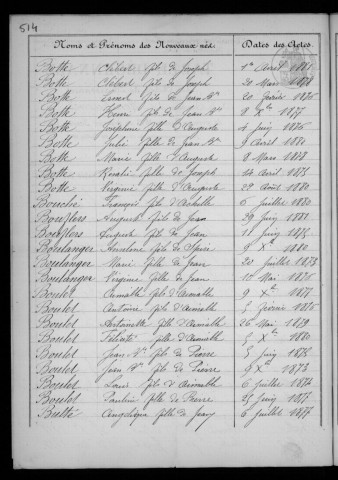 514
Noms et Prénoms des Nouveaux-nés. Dates des Actes.
Botte Clibert fils de Joseph 1er Avril 1881
Botte Clibert fils de Joseph 20 Mars 1878
Botte Ernest fils de Jean Bte 20 Février 1876
Botte Henri fils de Jean Bte 8 Xbre 1877
Botte Joséphine fille d'Auguste 4 Juin 1876
Botte Julie fille de Jean Bte 9 Avril 1880
Botte Marie fille d'Auguste 8 Mars 1878
Botte Rosalie fille de Joseph 24 Avril 1875
Botte Virginie fille d'Auguste 29 Août 1880
Bouché François fils d'Achille 6 Juillet 1880
Bouflers August fils de Jean 29 Juin 1880
Bouflers fils de Jean 11 Juin 1875
Boulanger Anselme fils de 9 Xbre 1880
Boulanger Marie fille de Jean 20 Juillet 1873
Boulanger Virginie fille de Jean 10 Mai 1876
Boulet Armable fils d'Armable 9 Xbre 1877
Boulet Antoine fils d'Armable 5 Février 1876
Boulet Antoinette fille d'Armable 26 Mai 1879
Boulet Félicité fille d'Armable 5 Xbre 1880
Boulet Jean Bte fils de Pierre 5 Juin 1875
Boulet Jean Bte fils de Pierre 9 Xbre 1873
Boulet Louis fils d'Armable 6 Juillet 1874
Boulet Pauline fille de Pierre 25 Juin 1877
Bulté Angélique fille de Jean 6 Juillet 1877